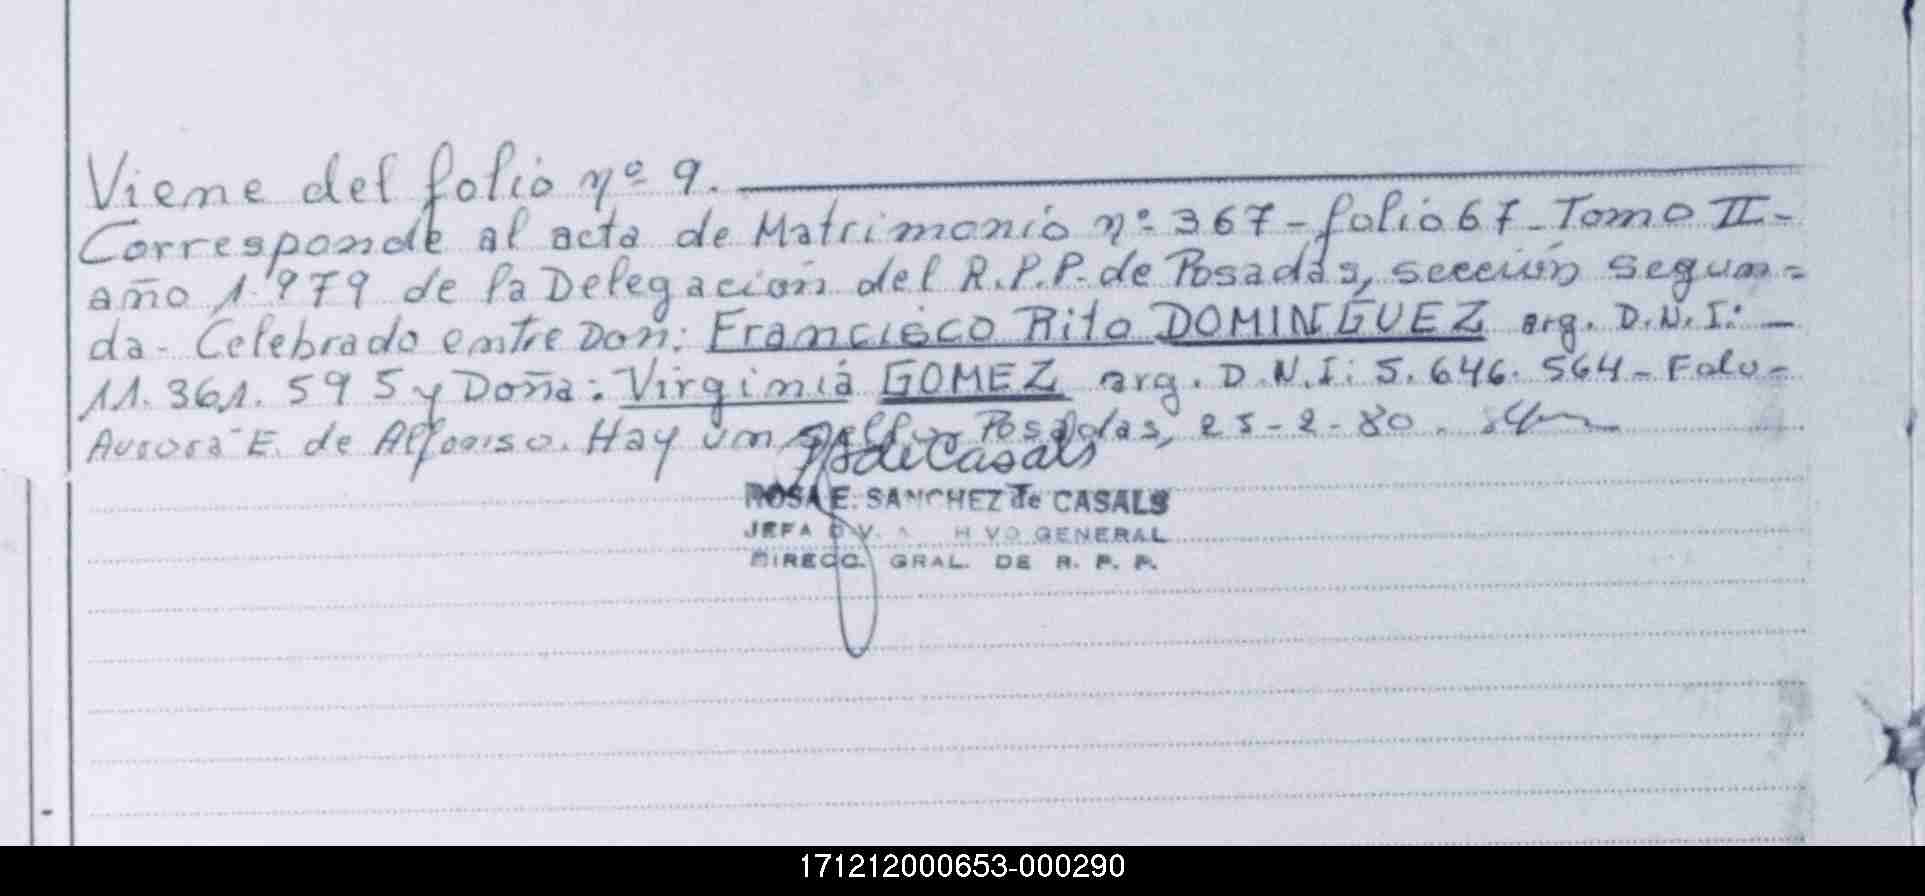 Viene del folio nº 9.
Corresponde al acta de Matrimonio nº 367 - folio 67 - Tomo II -
año 1.979 de la Delegación del R.P.P. de Posadas, sección Segun=
da - Celebrado entre Don: Francisco Rito DOMINGUEZ arg. D.N.I: -
11.361.595 y Doña: Virginia GOMEZ arg. D.N.I: 5.646.564 -
Aurora E. de Alfonso. Hay un sello Posadas, 25-2-80.
ROSA E. SANCHEZ de CASALS
JEFA GENERAL
DIRECC. GRAL. DE R. P. P.
171212000653-000290